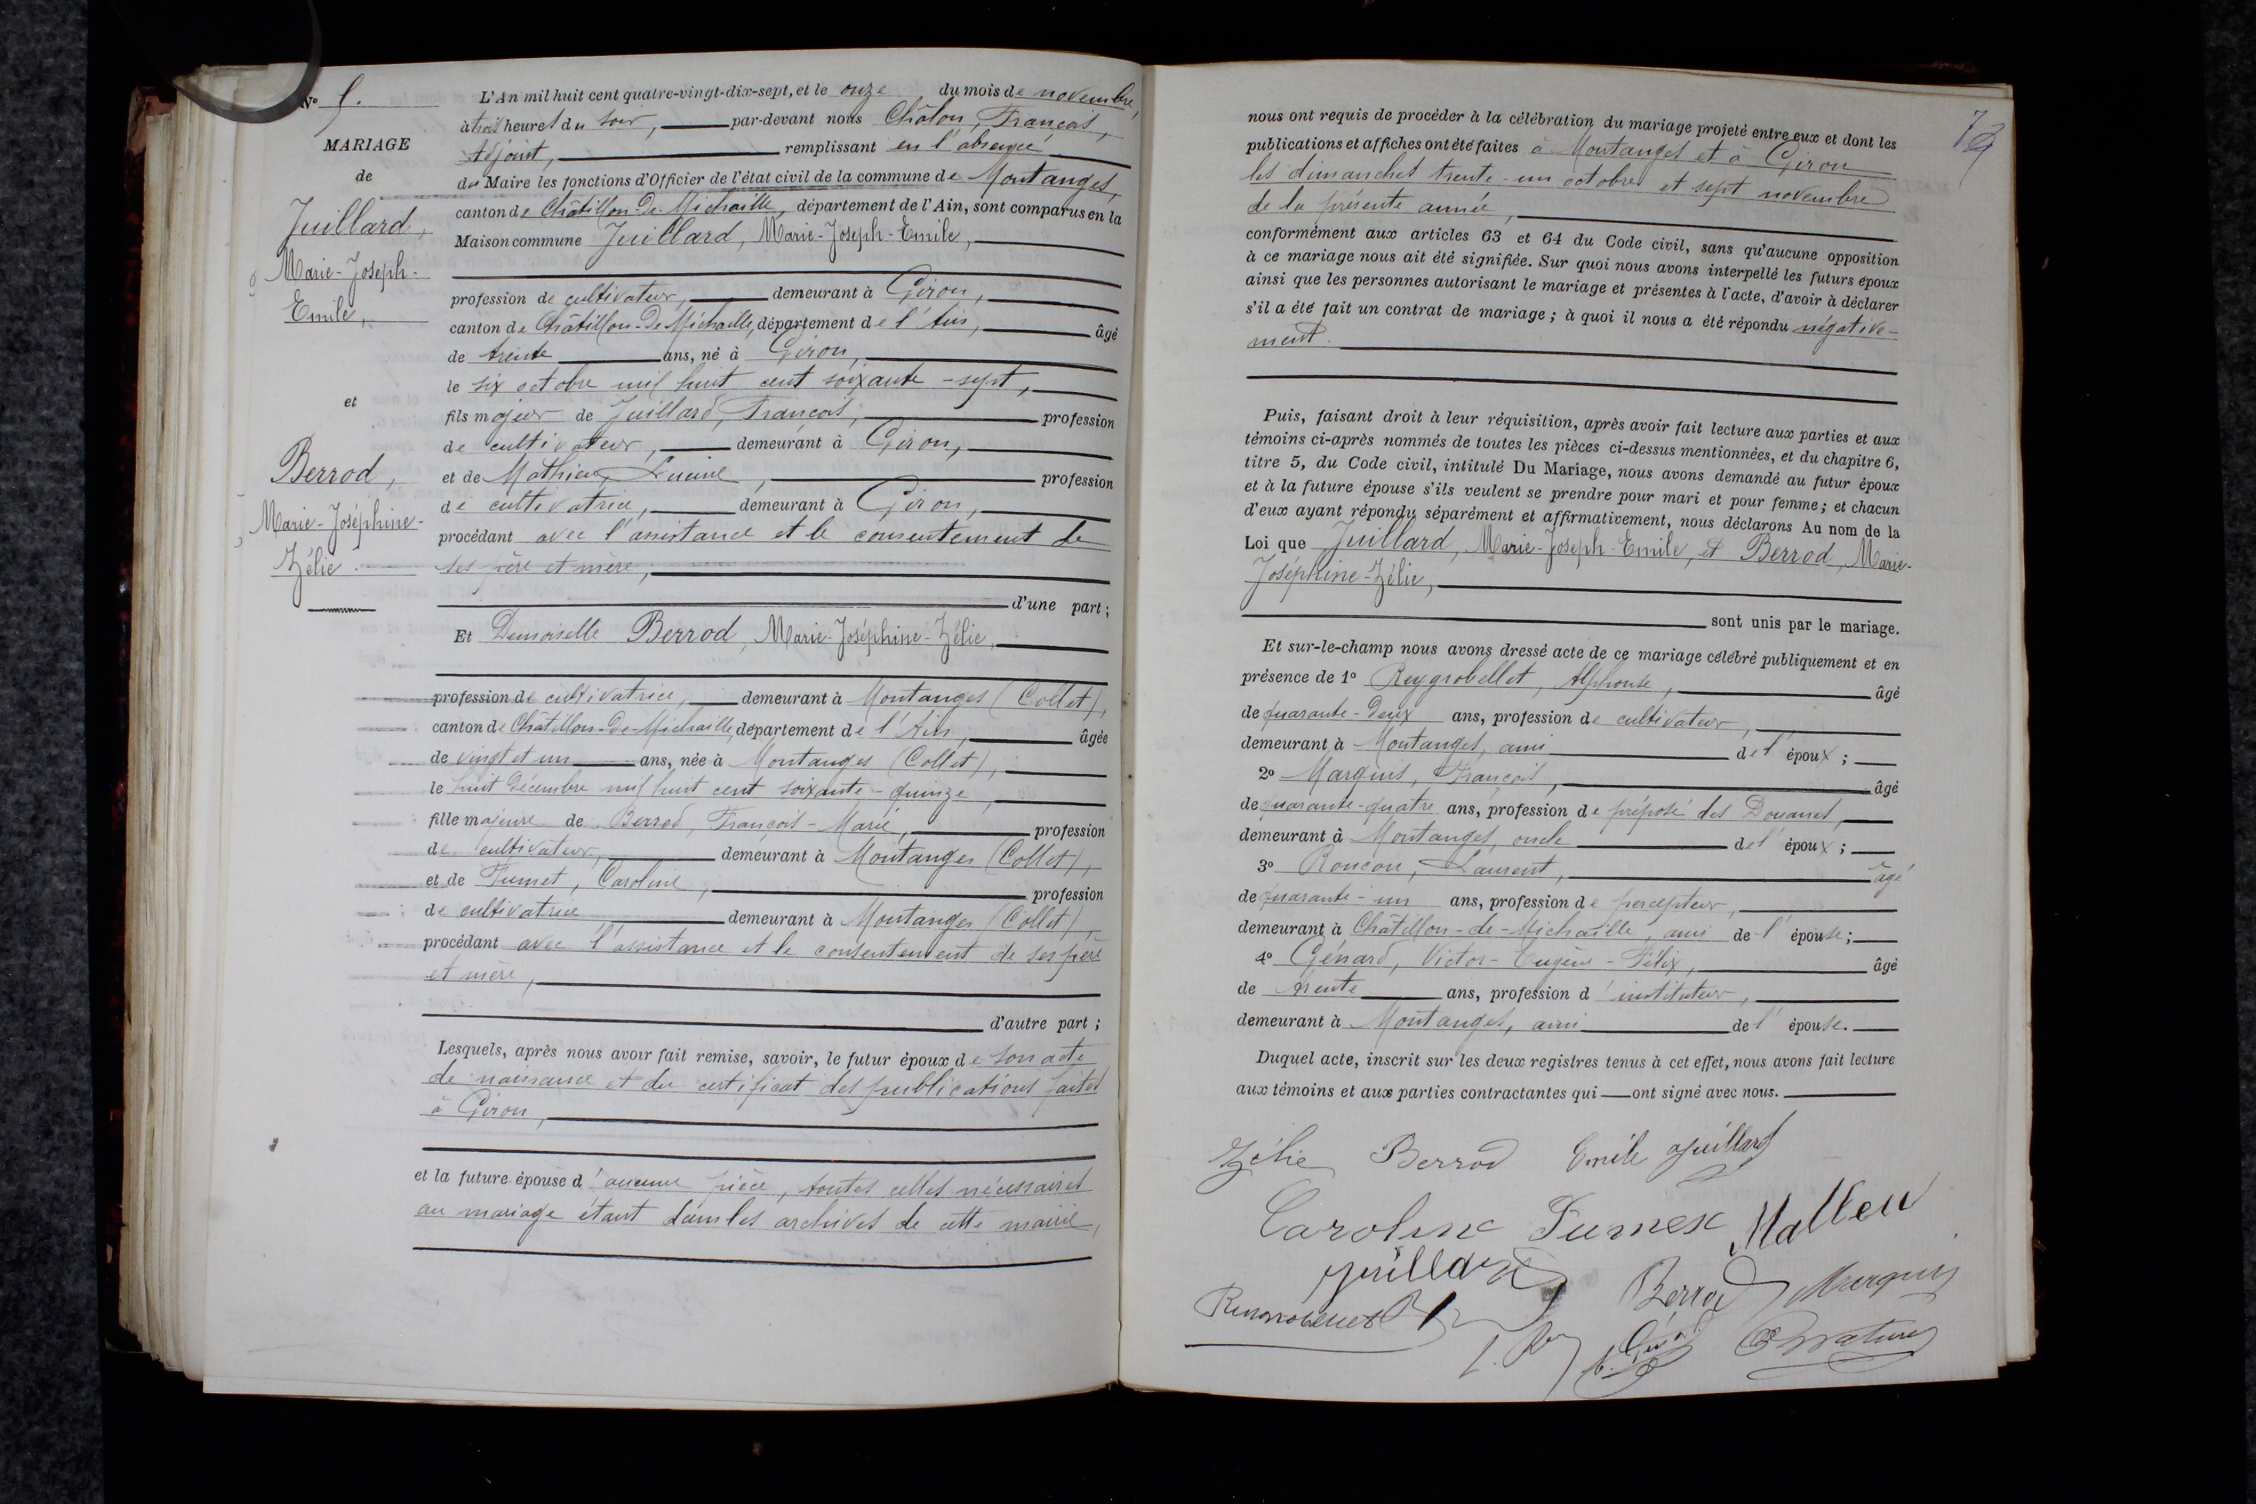 No
MARIAGE
de
Juillard,
Marie-Joseph-
Emile,
et
Berrod,
Marie-Joséphine-
Zélie.
L'An mil huit cent quatre-vingt-dix-sept, et le onze du mois de novembre,
à trois heures du soir, par-devant nous Châlon, François,
Adjoint, remplissant en l'absence
du Maire les fonctions d'Officier de l'état civil de la commune de Montanges,
canton de Châtillon-de-Michaille, département de l'Ain, sont comparus en la
Maison commune Juillard, Marie-Joseph-Emile,
profession de cultivateur, demeurant à Giron,
canton de Châtillon-de-Michaille, département de l'Ain, âgé
de trente ans, né à Giron,
le six octobre mil huit cent soixante-sept,
fils majeur de Juillard, François, profession
de cultivateur, demeurant à Giron,
et de Mathieu, profession
de cultivatrice, demeurant à Giron,
procédant avec l'assistance et le consentement de
ses père et mère,
d'une part;
Et Demoiselle Berrod, Marie-Joséphine-Zélie,
profession de cultivatrice, demeurant à Montanges (Collet),
canton de Châtillon-de-Michaille, département de l'Ain, âgée
de vingt et un ans, née à Montanges (Collet),
le huit décembre mil huit cent soixante-quinze,
fille majeure de Berrod, François-Marie, profession
de cultivateur, demeurant à Montanges (Collet),
et de Fumet, Caroline, profession
de cultivatrice demeurant à Montanges (Collet),
procédant avec l'assistance et le consentement de ses père
et mère,
d'autre part;
Lesquels, après nous avoir fait remise, savoir, le futur époux de son acte
de naissance et du certificat des publications faites
à Giron,
et la future épouse d'aucune pièce, toutes celles nécessaires
au mariage étant dans les archives de cette mairie,
nous ont requis de procéder à la célébration du mariage projeté entre eux et dont les
publications et affiches ont été faites à Montanges et à Giron
les dimanches trente-un octobre et sept novembre
de la présente année,
conformément aux articles 63 et 64 du Code civil, sans qu'aucune opposition
à ce mariage nous ait été signifiée. Sur quoi nous avons interpellé les futurs époux
ainsi que les personnes autorisant le mariage et présentes à l'acte, d'avoir à déclarer
s'il a été fait un contrat de mariage; à quoi il nous a été répondu négative-
ment.
Puis, faisant droit à leur réquisition, après avoir fait lecture aux parties et aux
témoins ci-après nommés de toutes les pièces ci-dessus mentionnées, et du chapitre 6,
titre 5, du Code civil, intitulé Du Mariage, nous avons demandé au futur époux
et à la future épouse s'ils veulent se prendre pour mari et pour femme; et chacun
d'eux ayant répondu séparément et affirmativement, nous déclarons Au nom de la
Loi que Juillard, Marie-Joseph-Emile, et Berrod, Marie-
Joséphine-Zélie,
sont unis par le mariage.
Et sur-le-champ nous avons dressé acte de ce mariage célébré publiquement et en
présence de 1o Reygrobellet, Alphonse, âgé
de quarante-deux ans, profession de cultivateur,
demeurant à Montanges, ami de l'époux;
2o Marquis, François, âgé
de quarante-quatre ans, profession de préposé des Douanes,
demeurant à Montanges, oncle de l'époux;
3o Laurent, âgé
de quarante-un ans, profession de percepteur,
demeurant à Châtillon-de-Michaille, ami de l'épouse;
4o Génard, Victor-Eugène-Félix, âgé
de trente ans, profession d'instituteur,
demeurant à Montanges, ami de l'épouse.
Duquel acte, inscrit sur les deux registres tenus à cet effet, nous avons fait lecture
aux témoins et aux parties contractantes qui ont signé avec nous.
Zélie Berrod Emile Juillard
Caroline
Juillard Berrod Marquis